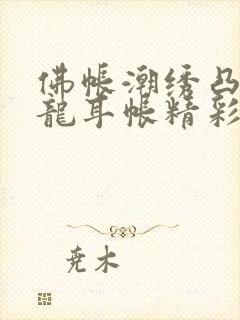 佛帐潮绣凸
龍耳帐精彩
尧木